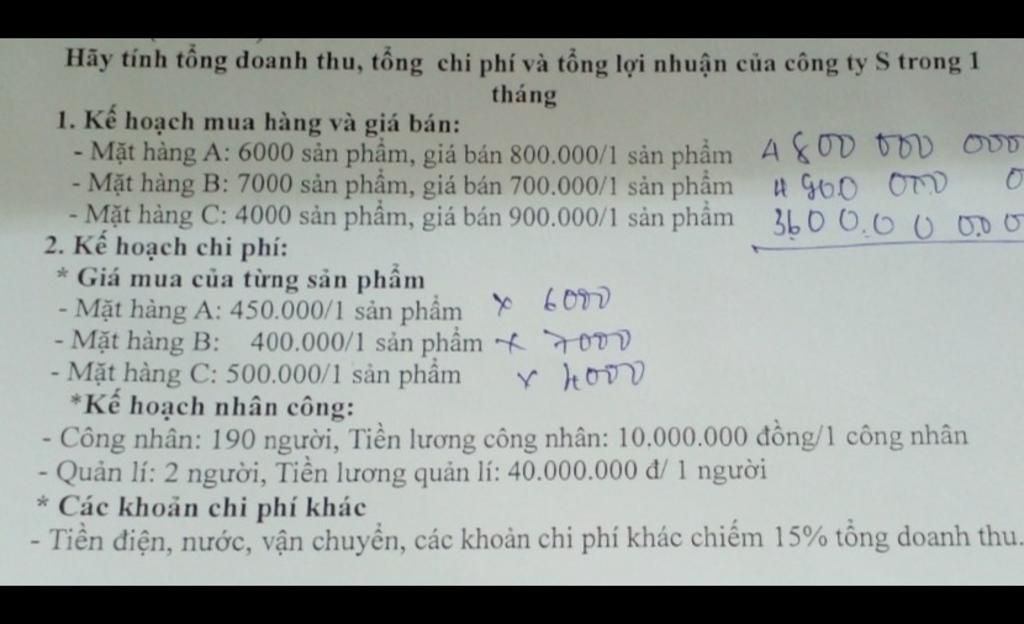 Hãy tính tổng doanh thu, tổng chi phí và tổng lợi nhuận của công ty S trong 1
tháng
1. Kế hoạch mua hàng và giá bán:
- Mặt hàng A: 6000 sản phẩm, giá bán 800.000/1 sản phẩm 4 800 000 000
- Mặt hàng B: 7000 sản phẩm, giá bán 700.000/1 sản phẩm 4 900 000 0
- Mặt hàng C: 4000 sản phẩm, giá bán 900.000/1 sản phẩm 3600.00 0.00
2. Kế hoạch chi phí:
* Giá mua của từng sản phẩm
- Mặt hàng A: 450.000/1 sản phẩm x 6000
- Mặt hàng B: 400.000/1 sản phẩm x 7000
- Mặt hàng C: 500.000/1 sản phẩm x 4000
*Kế hoạch nhân công:
- Công nhân: 190 người, Tiền lương công nhân: 10.000.000 đồng/1 công nhân
- Quản lí: 2 người, Tiền lương quản lí: 40.000.000 đ/ 1 người
* Các khoản chi phí khác
- Tiền điện, nước, vận chuyển, các khoản chi phí khác chiếm 15% tổng doanh thu.